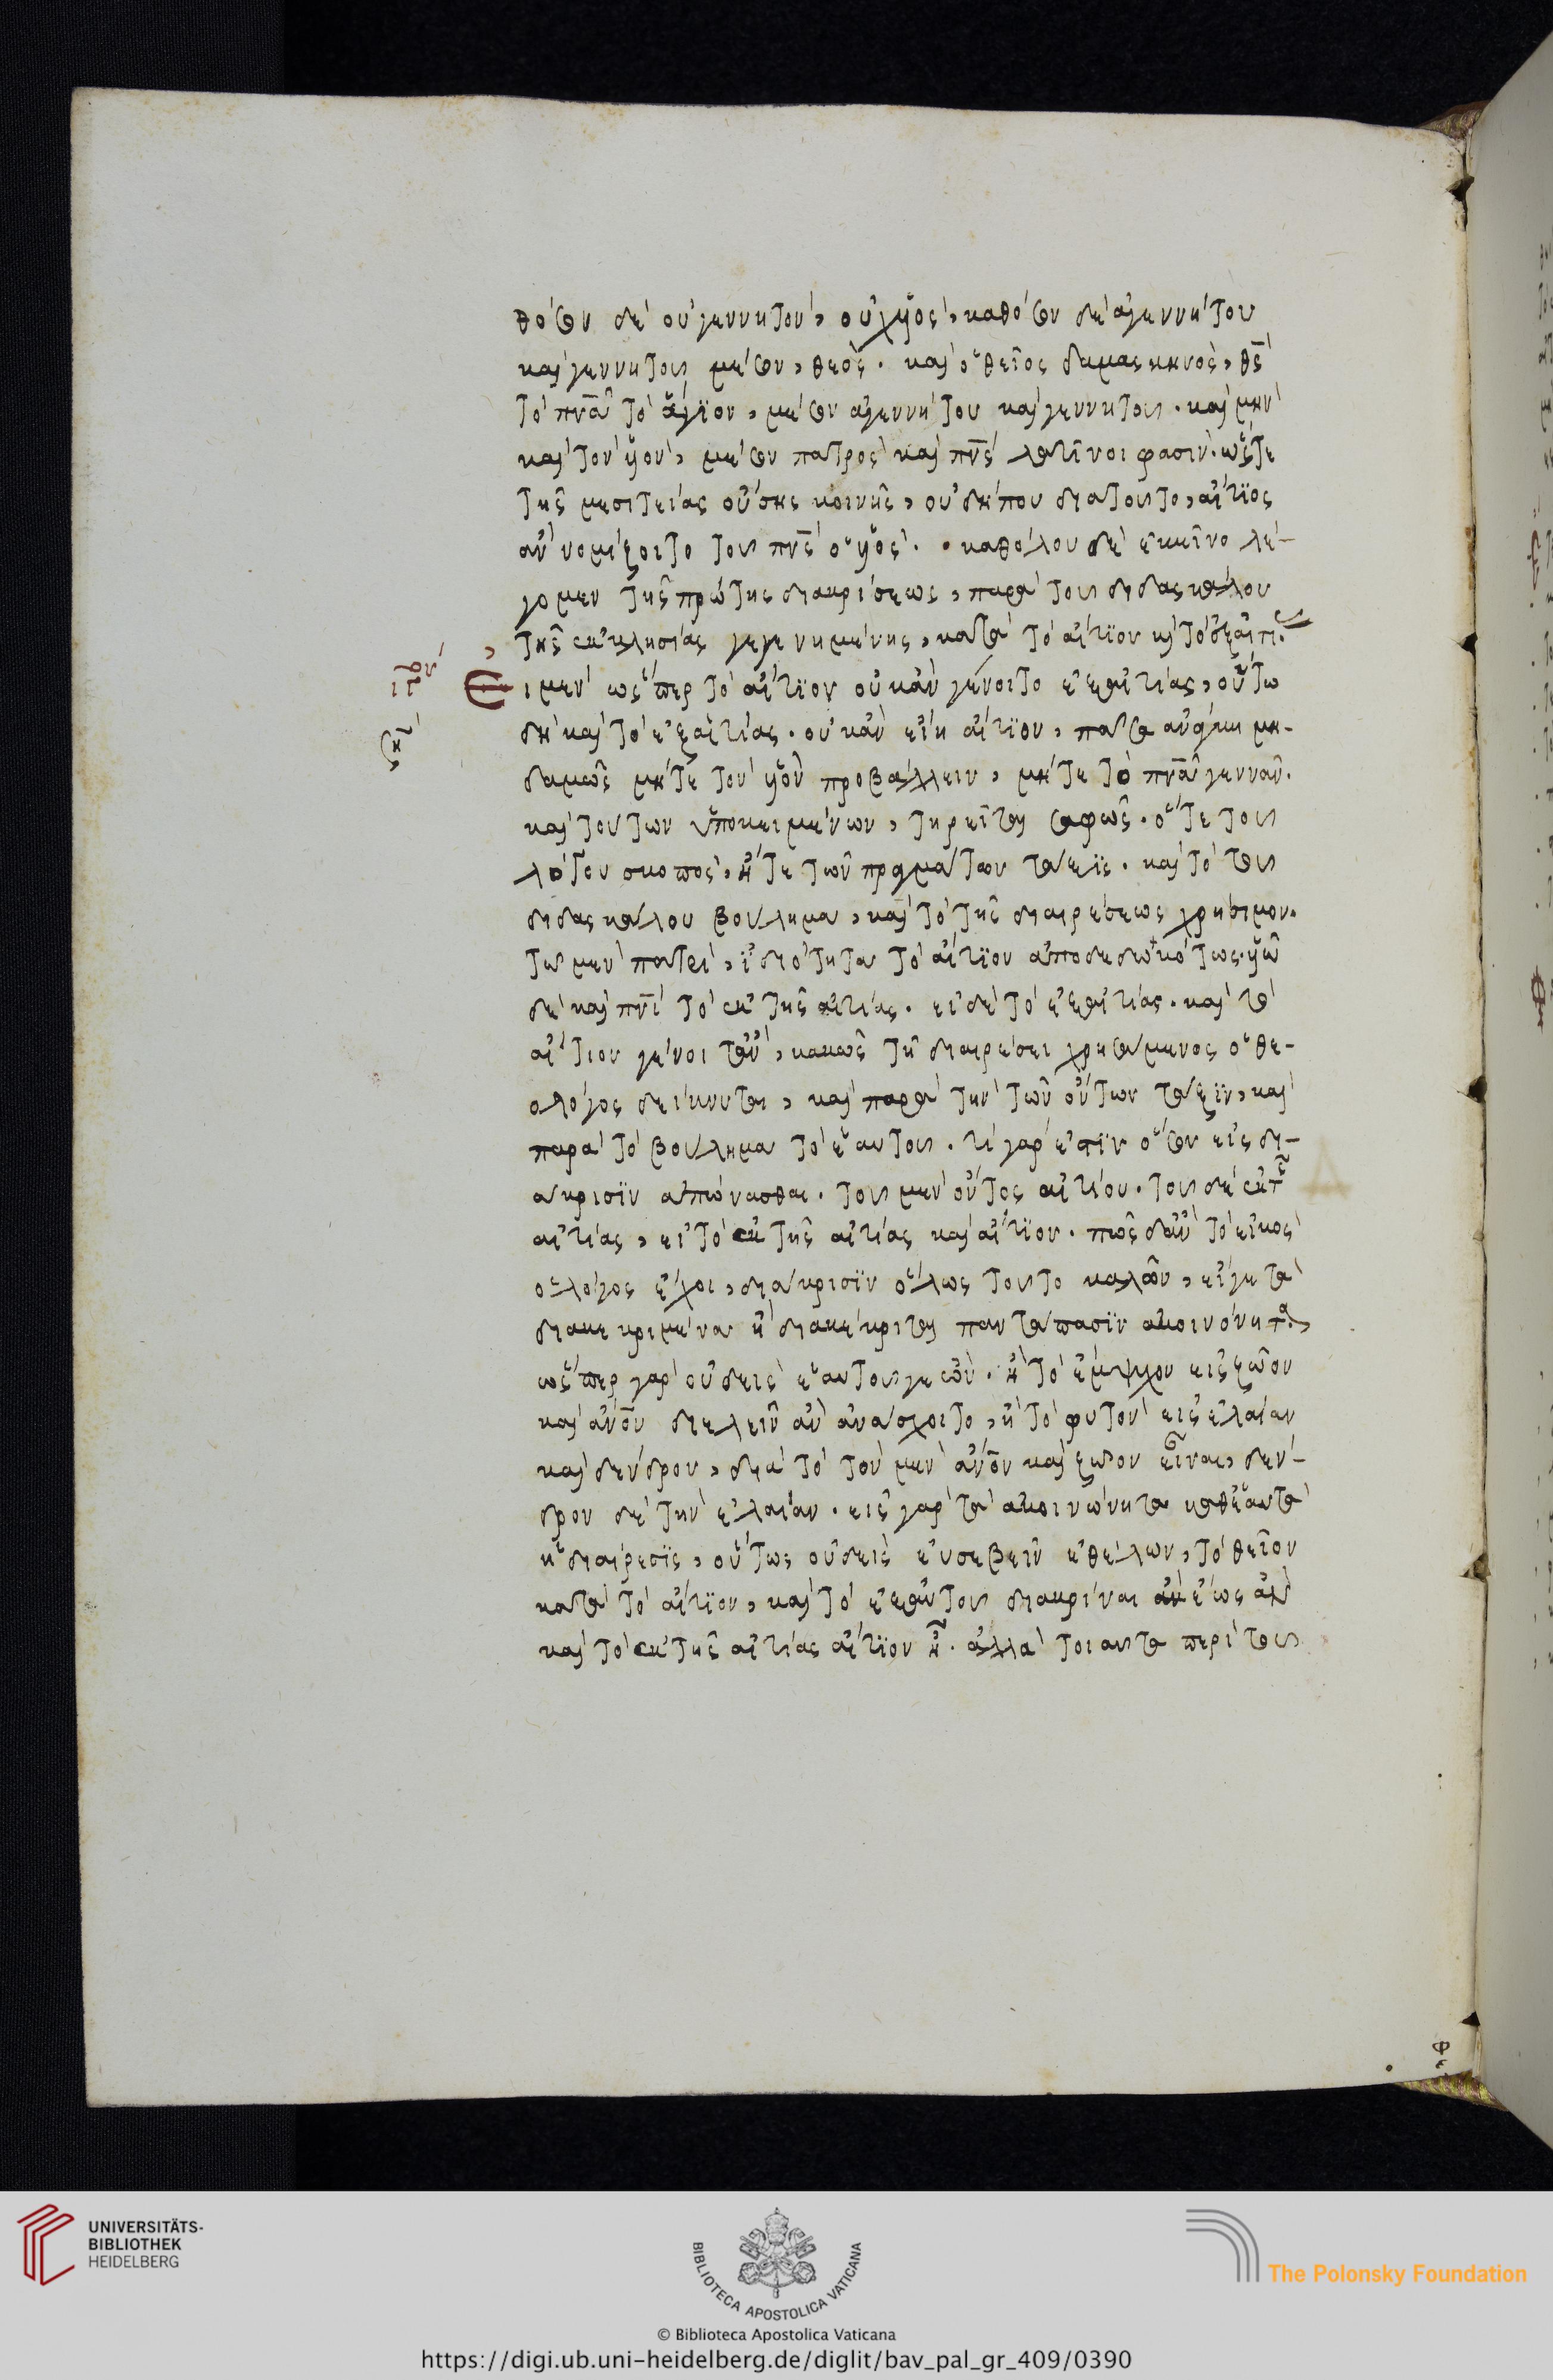 θόσον δὲ οὐ γεννητὸν, οὐχ ὑϊὸς, καθόσον δὲ ἀγεννήτου
καὶ γεννητοῦ μέσον, θεός. καὶ ὁ θεῖος δαμασκηνὸς, θς
τὸ πνα τὸ ἅγϊον, μέσον ἀγεννήτου καὶ γεννητοῦ. καὶ μὴν
καὶ τὸν ὑὸν, μέσον πατρὸς καὶ πνς λατῖνοι φασίν. ὥστε
τῆς μεσιτείας οὔσης κοινῆς, οὐ δήπου διατοῦτο, αἴτϊος
ἂν νομίζοιτο τοῦ πνς ὁ ὑός. καθόλου δὲ ἐκεῖνο λέ-
γομεν τῆς πρώτης διακρίσεως, παρὰ τοῦ διδασκάλου
τῆς ἐκκλησίας γεγενημένης, κατὰ τὸ αἴτϊον κὶ τὸ
Ει μὲν ὥσπερ τὸ αἴτϊον οὐκ ἂν γένοιτο ἐξ αἰτίας, οὕτω
δὴ καὶ τὸ ἐξ αἰτίας. οὐκ ἂν εἴη αἴτϊον, πᾶσα ἀνάγκη μη-
δαμῶς μήτε τὸν ὑὸν προβάλλειν, μήτε τὸ πνα γεννᾶν.
καὶ τούτων ὑποκειμένων, τηρεῖται σαφῶς. ὅτε τοῦ
λόγου σκοπὸς, ἥτε τῶν πραγμάτων τάξϊς. καὶ τὸ τοῦ
διδασκάλου βούλημα, καὶ τὸ τῆς διαιρέσεως χρήσιμον.
τῶ μὲν πατρὶ, ἰδιότητα τὸ αἴτϊον ἀποδεδωκότως. ὑῶ
δὲ καὶ πνι τὸ ἐκ τῆς αἰτίας. εἰ δὲ τὸ ἐξ αἰτίας. καὶ τὸ
αἴτιον γένοιτ' ἂν, κακῶς τῆ διαιρέσει χρησάμενος ὁ θε-
ολόγος δείκνυται, καὶ παρὰ τὴν τῶν ὄντων τάξϊν, καὶ
παρὰ τὸ βούλημα τὸ ἑαυτοῦ. τί γὰρ ἐστϊν ὅσον εἰς δι-
άκρισϊν ἀπώνασθαι. τοῦ μὲν ὄντος αἰτίου. τοῦ δὲ ἐκ τ
αἰτίας, εἰ τὸ ἐκ τῆς αἰτίας καὶ αἴτϊον. πῶς δ' ἂν τὸ εἰκὸς
ὁ λόγος ἔχοι, διάκρισϊν ὅλως τοῦτο καλῶν, εἴγε τὰ
διακεκριμένα ἢ διακέκριται παντάπασϊν ἀκοινώνητα,
ὥσπερ γὰρ οὐδεὶς ἑαυτοῦ γε ὢν. ἢ τὸ ἔμψυχον εἰς ζῶον
καὶ ἄνον διελεῖν ἂν ἀνάσχοιτο, ἢ τὸ φυτὸν εἰς ἐλαίαν
καὶ δένδρον, διὰ τὸ τὸν μὲν ἄνον καὶ ζῶον εἶναι, δέν-
δρον δὲ τὴν ἐλαίαν. εἰς γὰρ τὰ ἀκοινώνητα καθ' ἑαυτὰ
ἡ διαίρεσϊς, οὕτως οὐδεὶς εὐσεβεῖν ἐθέλων, τὸ θεῖον
κατὰ τὸ αἴτϊον, καὶ τὸ ἐξ αὐτοῦ διακρίναι
καὶ τὸ ἐκ τῆς αἰτίας αἴτϊον ἦ. ἀλλὰ τοιαῦτα περὶ τοῦ
UNIVERSITÄTS-
BIBLIOTHEK
HEIDELBERG
BIBLIOTECA APOSTOLICA VATICANA
The Polonsky Foundation
© Biblioteca Apostolica Vaticana
https://digi.ub.uni-heidelberg.de/diglit/bav_pal_gr_409/0390